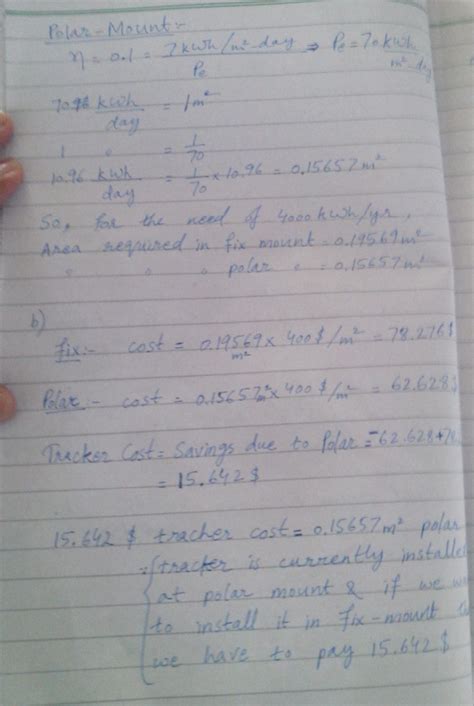 Polar-Mount:-
η = 0.1 = 7 kWh/m²-day / Pe ⇒ Pe = 70 kWh / m²-day
70 kWh/day = 1 m²
1 " = 1/70
10.96 kWh/day = 1/70 × 10.96 = 0.15657 m²
So, for the need of 4000 kWh/yr,
Area required in fix mount = 0.19569 m²
" " " polar " = 0.15657 m²
b)
fix:- cost = 0.19569 m² × 400 $/m² = 78.276 $
Polar:- cost = 0.15657 m² × 400 $/m² = 62.628 $
Tracker Cost = Savings due to Polar = -62.628+78
= 15.642 $
15.642 $ tracher cost = 0.15657 m² polar
tracker is currently installe
at polar mount & if we w
to install it in fix-mount
we have to pay 15.642 $